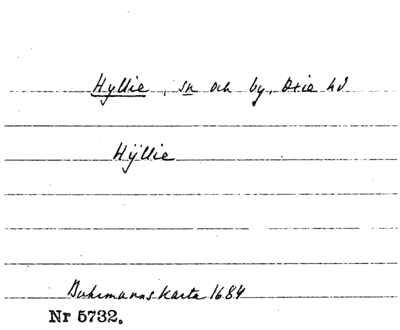 Hyllie, sn och by, Oxie hd
Hÿllie
Buhrmanns Karta 1684
Nr 5732.